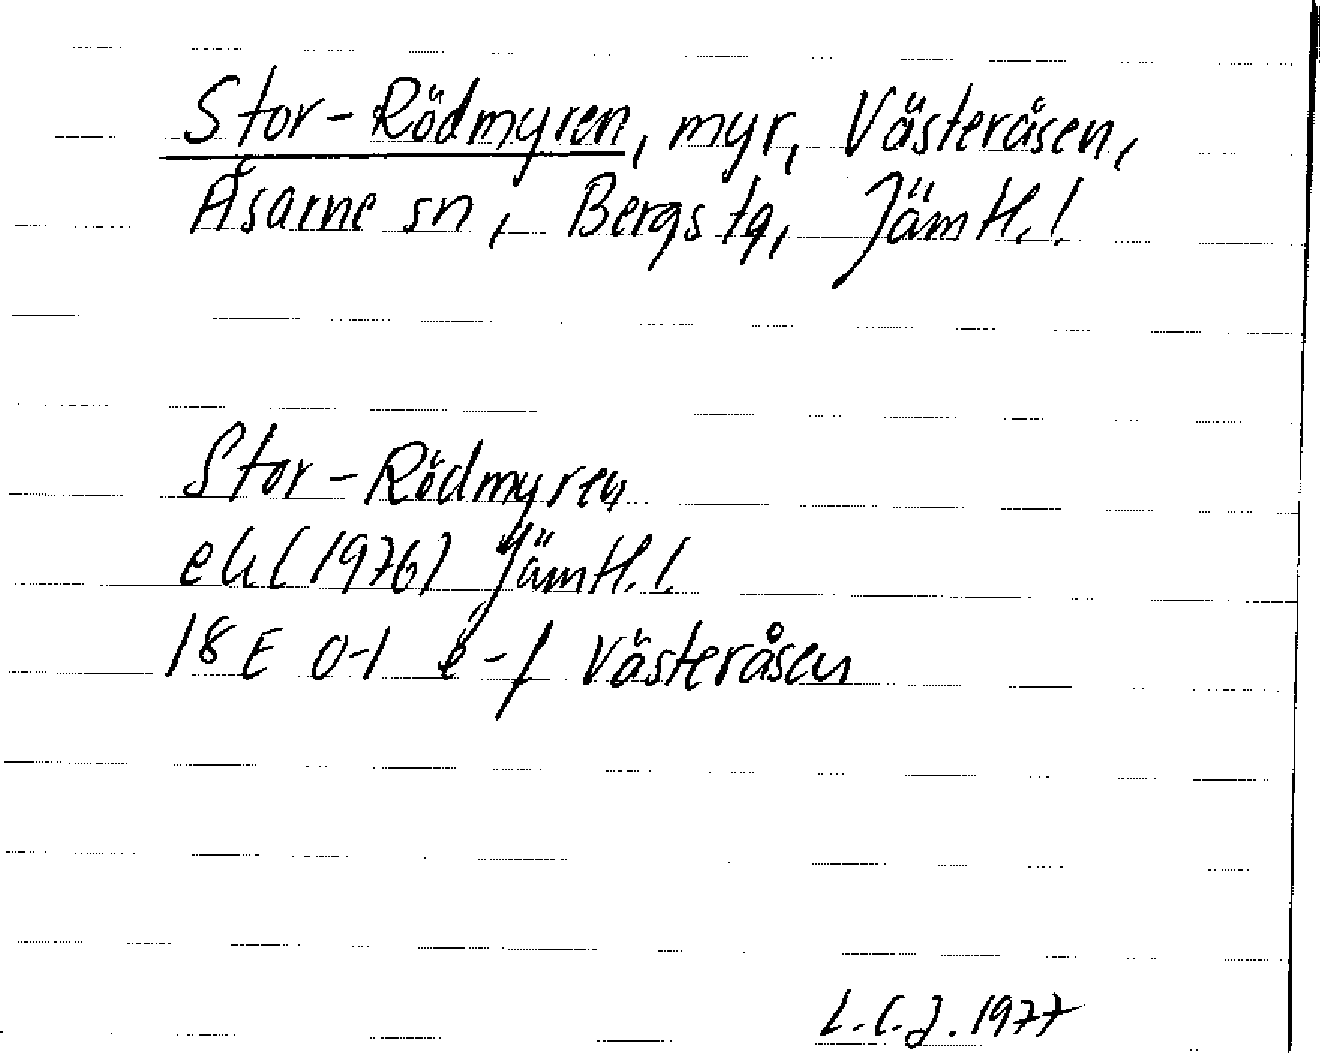 Stor-Rödmyren, myr, Västeråsen,
Åsarne sn, Bergs tg, Jämtl. l.
Stor-Rödmyren
ek (1976) Jämtl. l.
18E 0-1 e-f Västeråsen
L.C.J. 1977